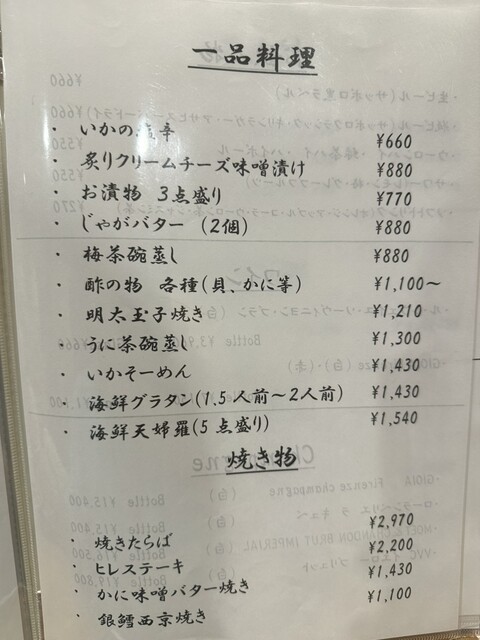 一品料理
・ いかの塩辛 ¥660
・ 炙りクリームチーズ味噌漬け ¥880
・ お漬物 3点盛り ¥770
・ じゃがバター (2個) ¥880
・ 梅茶碗蒸し ¥880
・ 酢の物 各種(貝、かに等) ¥1,100～
・ 明太玉子焼き ¥1,210
・ うに茶碗蒸し ¥1,300
・ いかそーめん ¥1,430
・ 海鮮グラタン(1.5人前～2人前) ¥1,430
・ 海鮮天婦羅(5点盛り) ¥1,540
焼き物
・ 焼きたらば ¥2,970
・ ヒレステーキ ¥2,200
・ かに味噌バター焼き ¥1,430
・ 銀鱈西京焼き ¥1,100